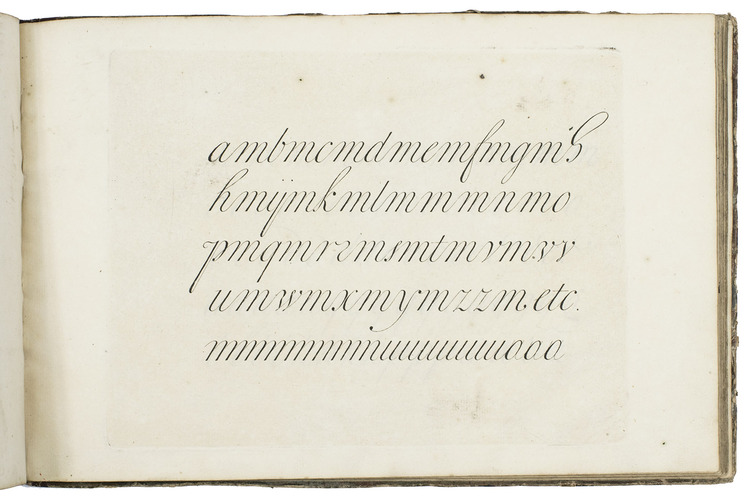 ambmcmdmemfmgmh
hmijmkmlmmmmnmo
pmqmrzmsmtmvmvv
umwmxmymzzm. etc.
mmmmmmmuuuuuuuooo